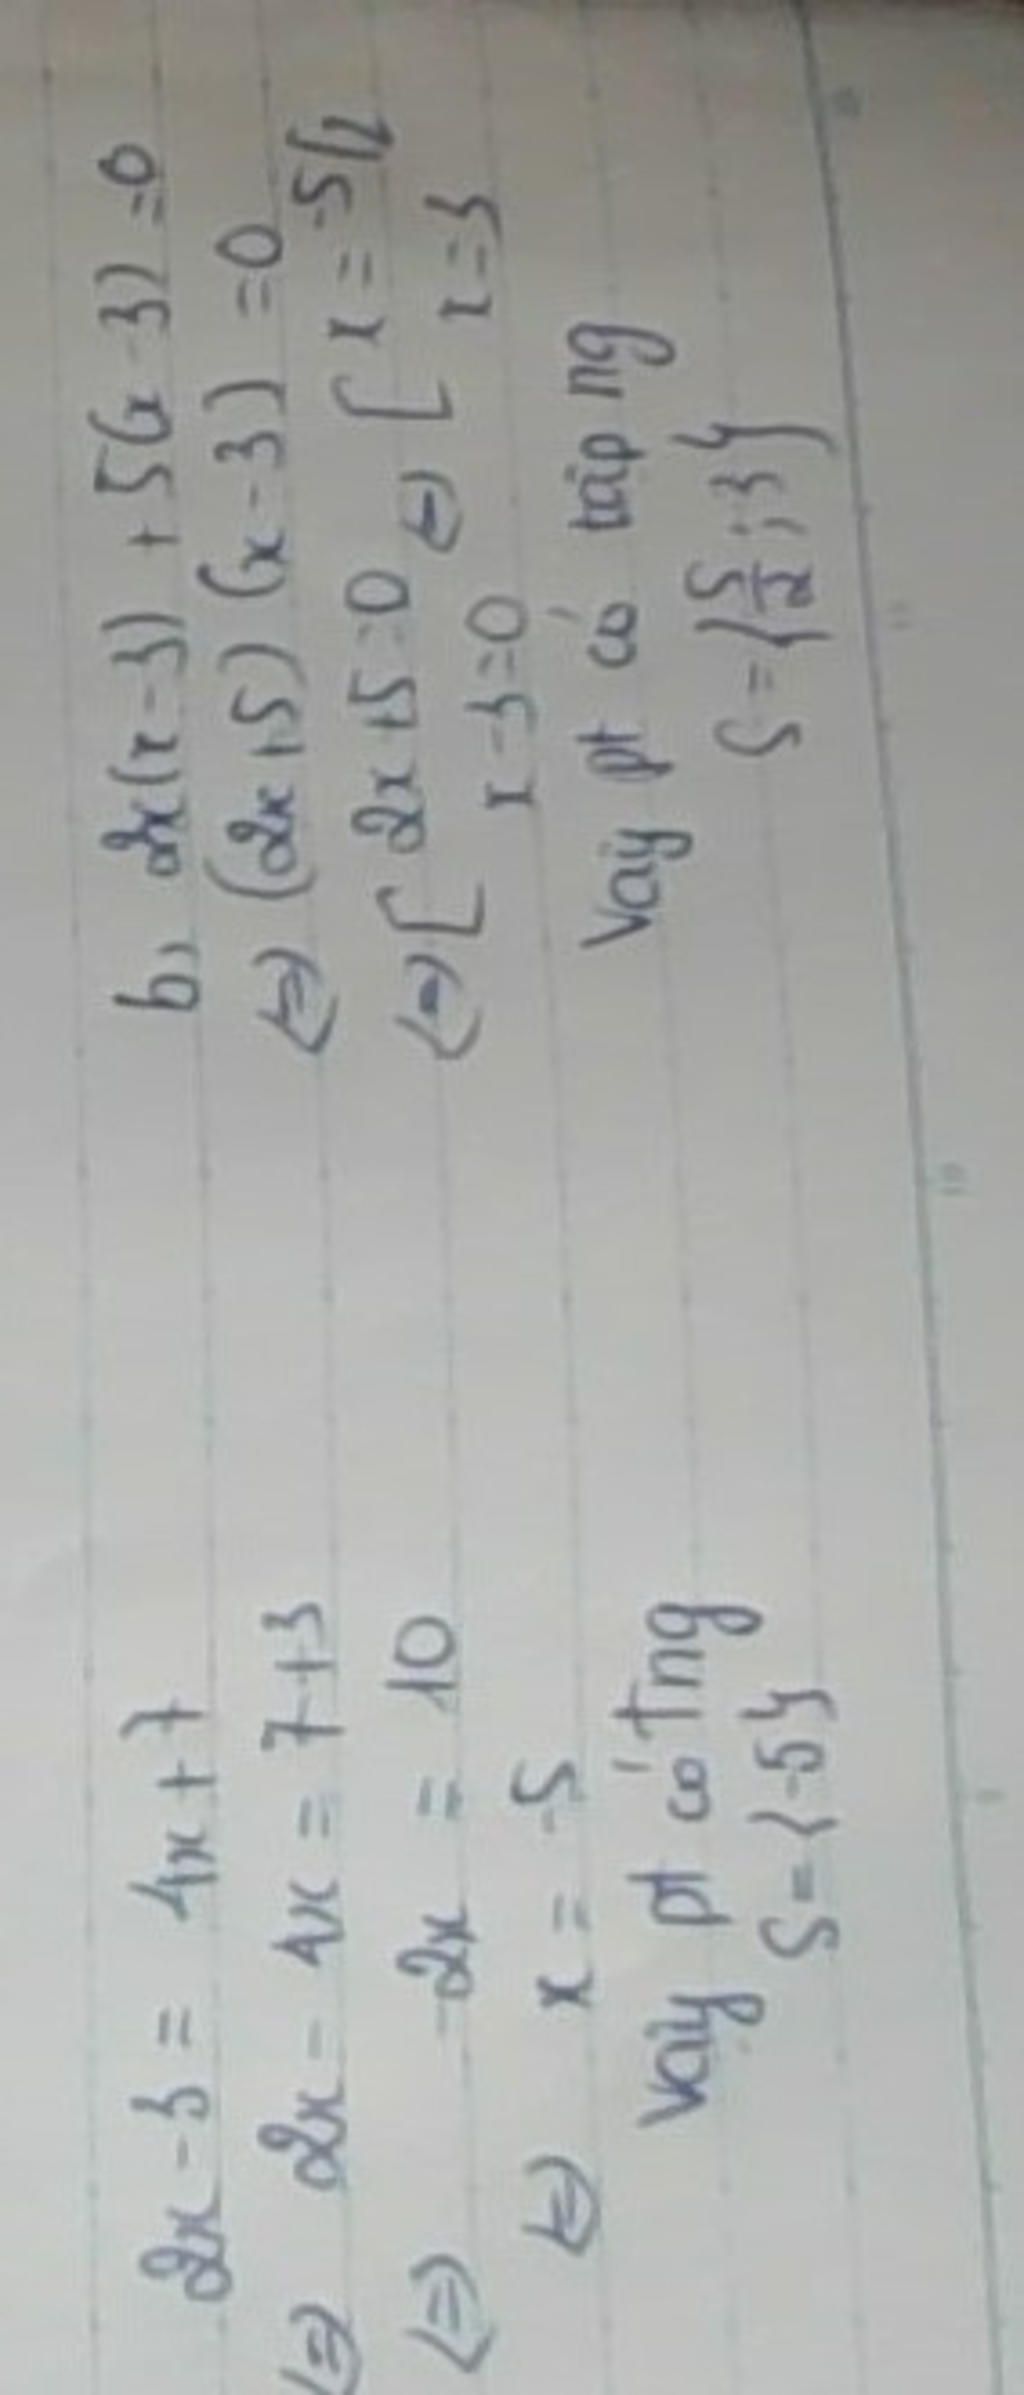 2x - 3 = 4x + 7
<=> 2x - 4x = 7 + 3
<=> -2x = 10
<=> x = -5
Vậy pt có tng
S = {-5}
b, 2x(x - 3) + 5(x - 3) = 0
<=> (2x + 5) (x - 3) = 0
<=> [ 2x + 5 = 0 <=> [ x = -5/2
x - 3 = 0 x = 3
Vậy pt có tập ng
S = {5/2 ; 3}